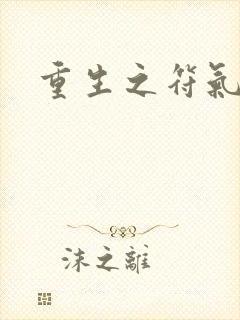 重生之符氣
沫之離